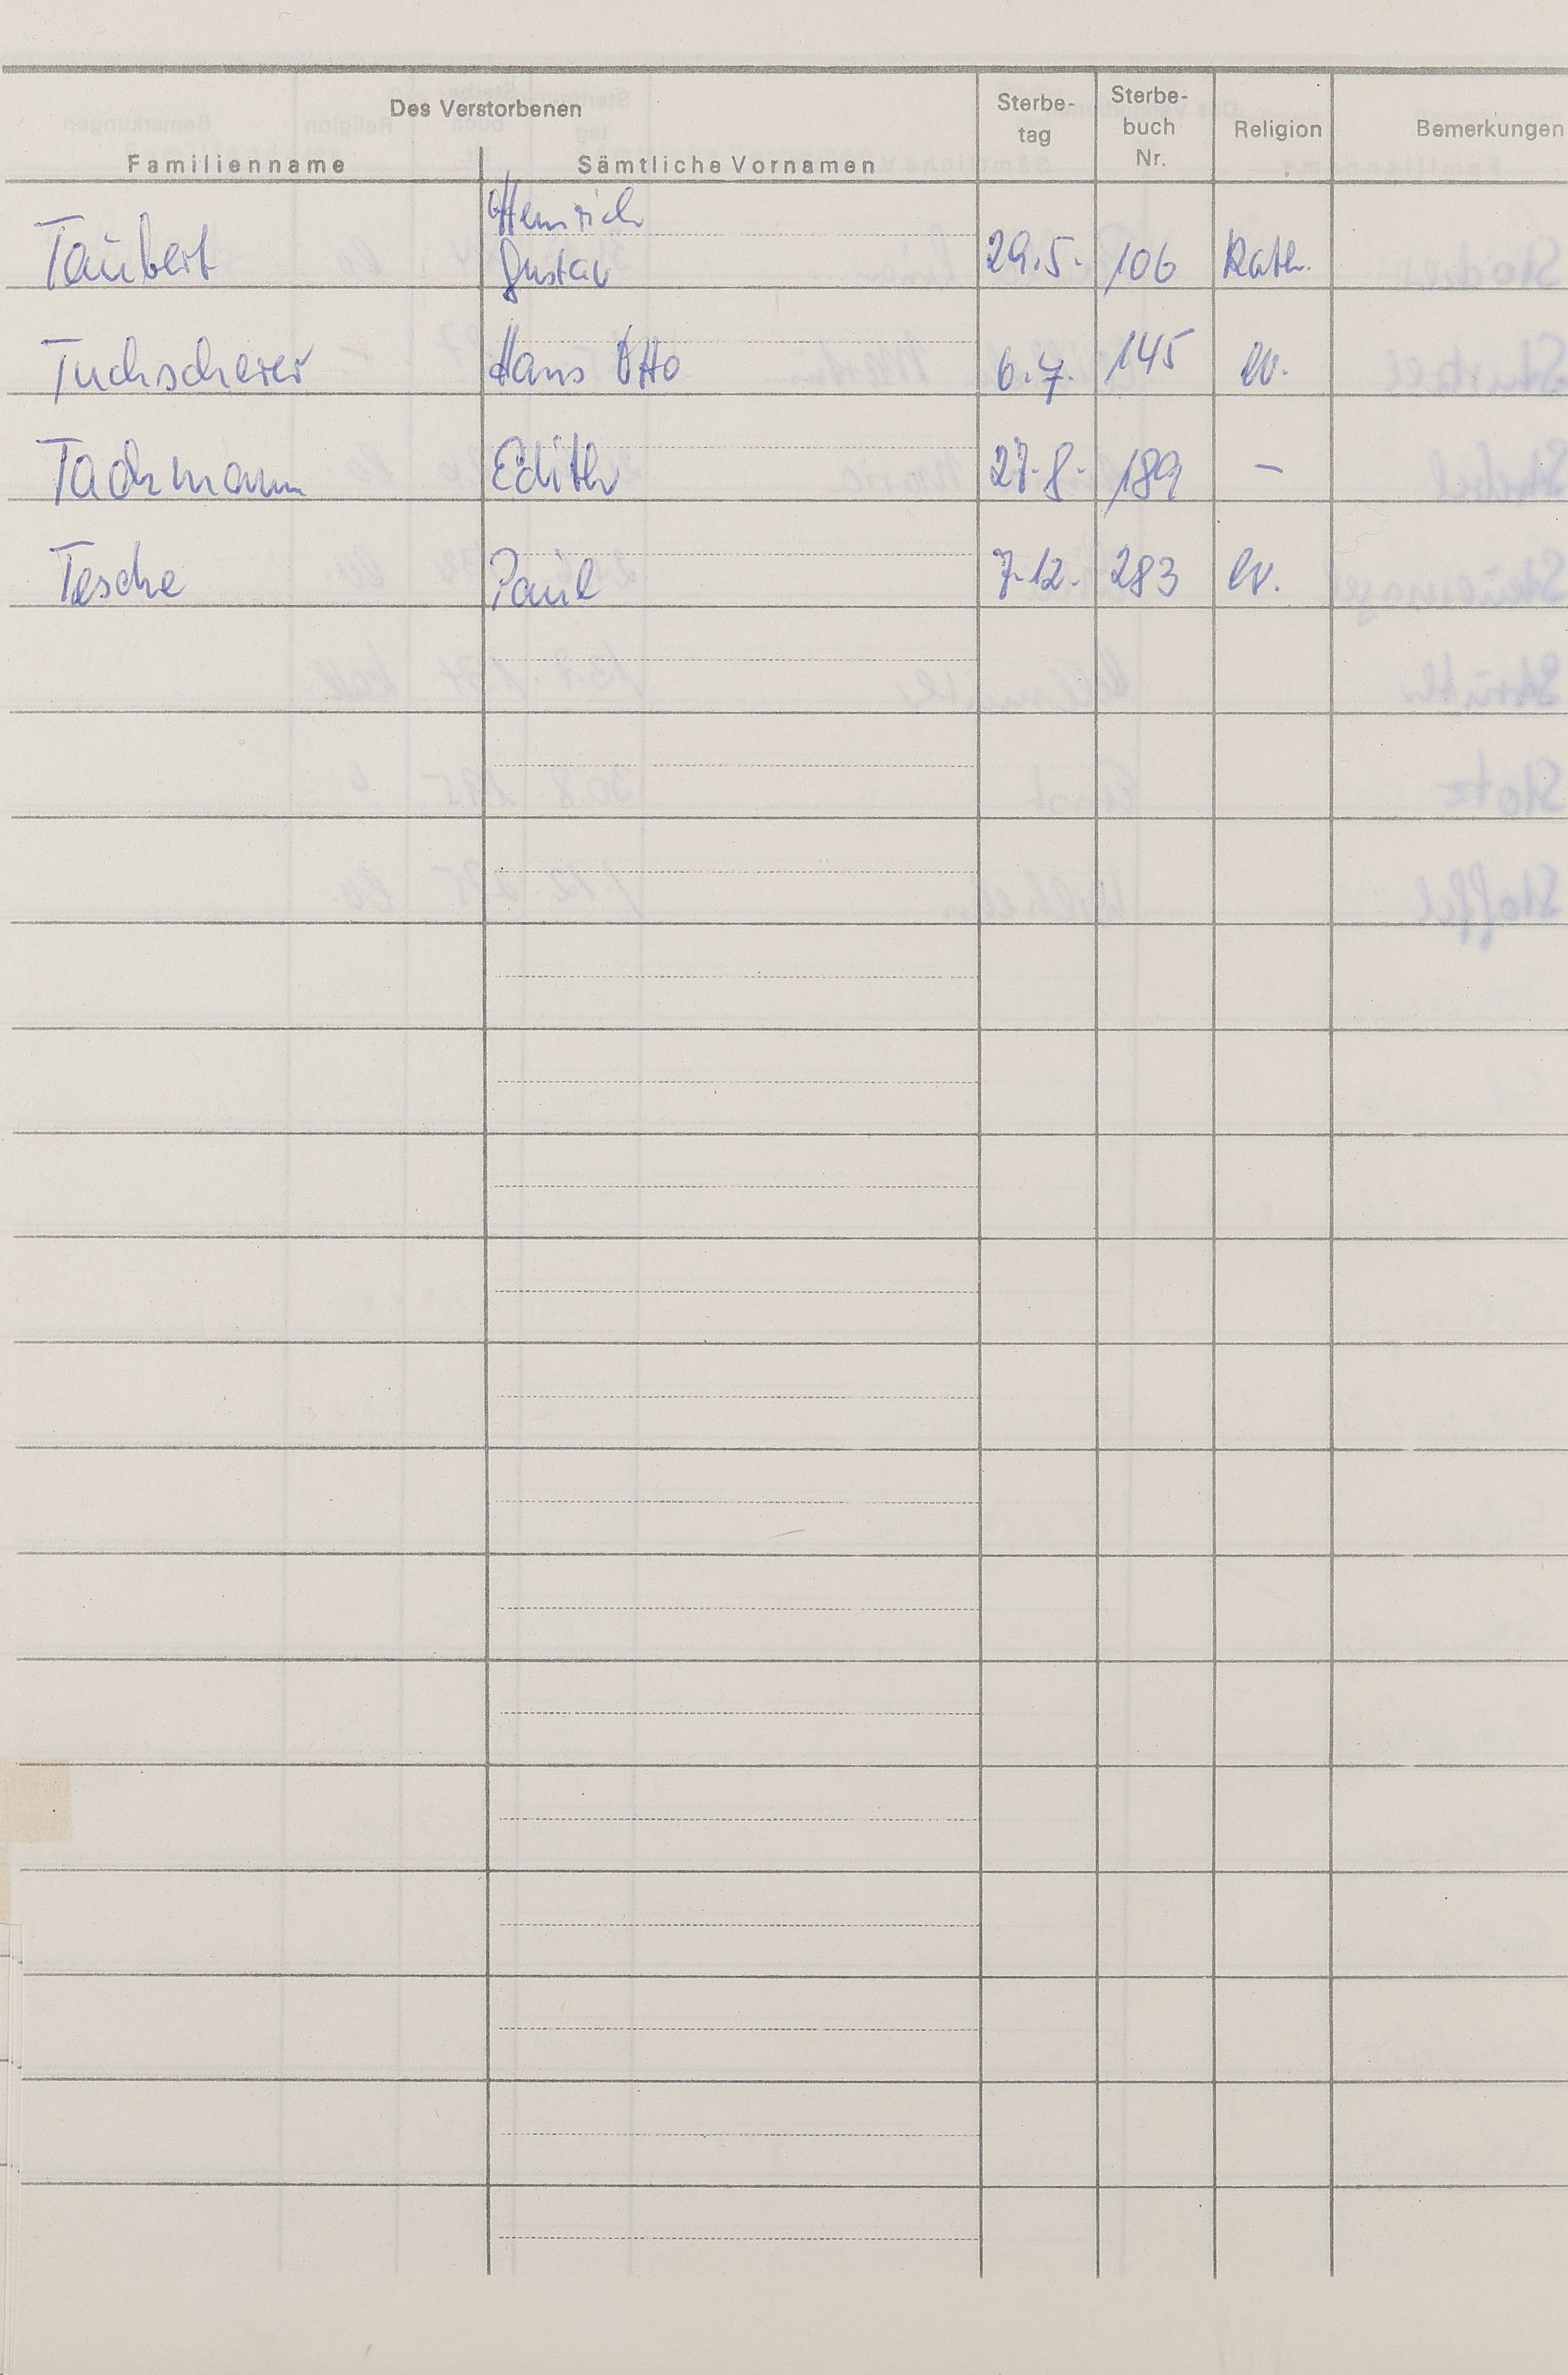 Des Verstorbenen
Familienname
Sämtliche Vornamen
Sterbe-
tag
Sterbe-
buch
Nr.
Religion
Bemerkungen
Heinrich
Taubert Gustav 29.5. 106 Kath.
Tuchscherer Hans Otto 6.7. 145 ev.
Tackmann Edith 27.8. 189 –
Tesche Paul 7.12. 283 ev.